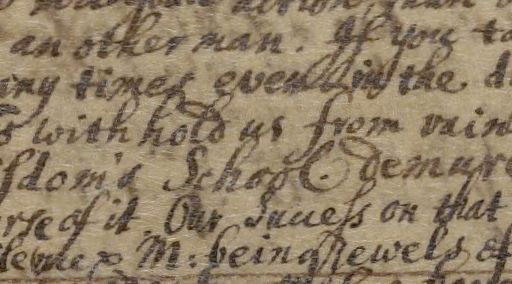 an other man. If you ta
any times even in the d
withhold us from vain
isdom's School. demure
erse of it. Our Sucess on that
M: being Jewels of